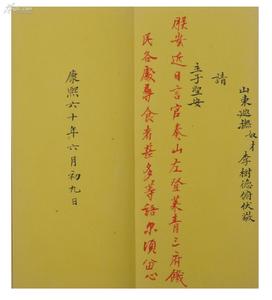 山東巡撫奴才李樹德俯伏
請
主子聖安
朕安近日言官奏山左登萊青三府饑
民各處尋食者甚多等語尔須留心
康熙六十年六月初九日